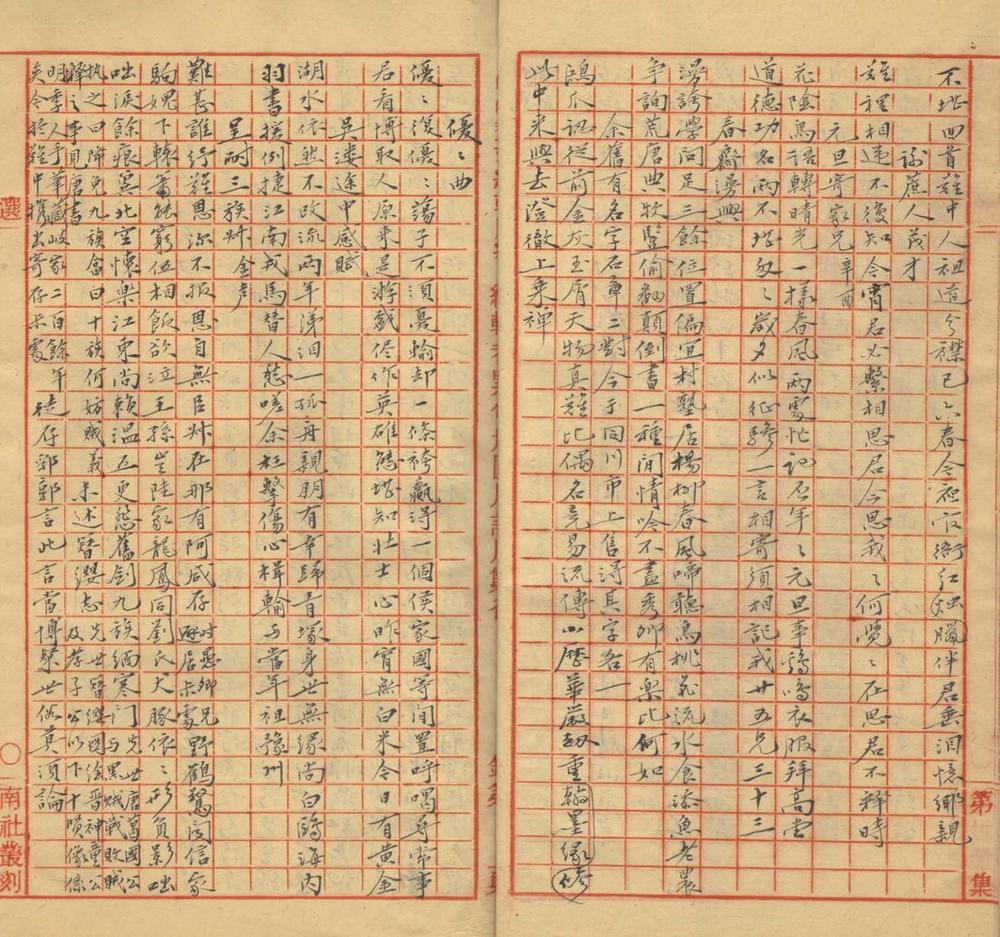 不堪回首難中人祖道分襟已六春今夜官衙紅燭臘伴君垂淚憶鄉親
示蔗人茂才
難裡相逢不復知今宵君必繫相思君今思我我何覺覺在思君不釋時
元旦寄家兄辛酉
花陰鳥語轉晴光一樣春風兩處忙記否年年元旦事鷄鳴衣服拜高堂
道德功名兩不堪匆匆歲夕似征驂一言相寄須相記我廿五兄三十三
春齋漫興
漫誇學問足三餘位置偏宜村塾居楊柳春風啼聽鳥桃花流水食添魚老農
爭詢荒唐典牧豎偷翻顛倒書一種閒情吟不盡秀卿有樂比何如
余舊有名字石章二對今于同川市上售得其字名一
鴻爪記從前金灰玉屑天物真難比偶名竟易流傳小歷華嚴劫重翰墨緣修
此中米與去澄徹上乘禪
優優曲
優優復優優蕩子不須憂輸却一條袴贏得一個侯家國等閒置呼喝尋常事
君看博取人原來是游戲侭作英雄鷦堪知壯士心昨宵無白米今日有黃金
吳淞途中感賦
湖水依然不改流兩年涕泪一孤舟親朋有幸歸青塚身世無緣尚白鷗海內
羽書援例捷江南戎馬替人愁嗟余枉擊傷心楫輸與當年祖豫州
呈耐三族叔金聲
難甚誰行難思深不報恩自無臣叔在那有阿咸存時愚卿兄居未處野鶴鷺凌信家
駒媿下轅蕭能窮伍相飯欲泣王孫豈陸家龍鳳同劉氏犬豚依依形負影咄
咄淚餘痕冀北空懷樂江東尚賴溫五更怨舊劍九族緬寒門先世唐萬國公與黑賊戰敗賊
執之曰降免九族會曰十族何妨賊義未述簪纓志先世簪纓圖繪晉神童公
釋之事見唐書及孝子公以下十賾像係
明季人手筆藏岐家二百餘年徒存郭郭言此言當博粲世俗莫須論
矣今於難中攜出寄存未處
選
南社叢刻
第
集